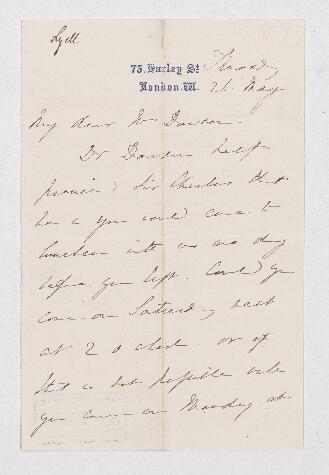 Lyell
73, Harley St. Thursday
London. W. 26 May
My dear Mrs Dawson
Dr Dawson half
promised Sir Charles that
he & you would come to
luncheon with us one day
before you left. Could you
come on Saturday next
at 2 o'clock or if
that is not possible would
you come on Monday at